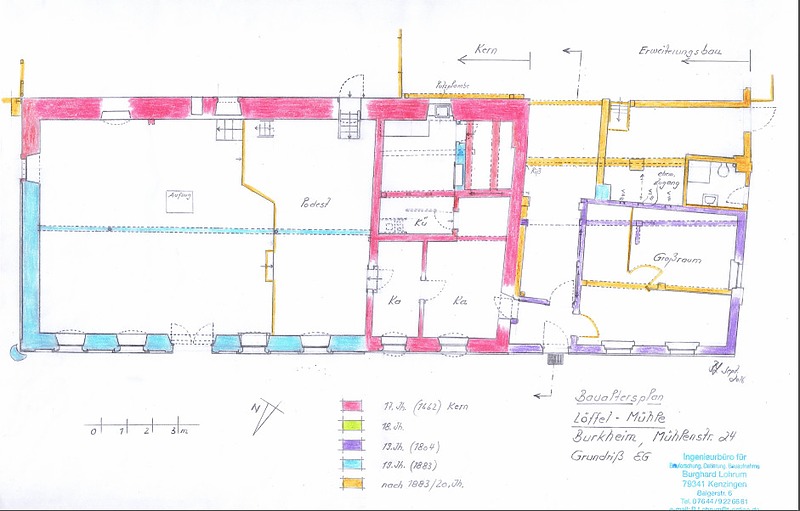 Kern
Erweiterungsbau
Aufzug
Podest
Kü
Ka
Ka
ehem.
Zugang
Großraum
N
0 1 2 3 m
17. Jh. (1662) Kern
18. Jh.
19. Jh. (1804)
19. Jh. (1883)
nach 1883/20. Jh.
Bauältersplan
Löffel-Mühle
Burkheim, Mühlenstr. 24
Grundriß EG
Ingenieurbüro für
Burghard Lohrum
79341 Kenzingen
Balgerstr. 6
Tel. 07644/9226681